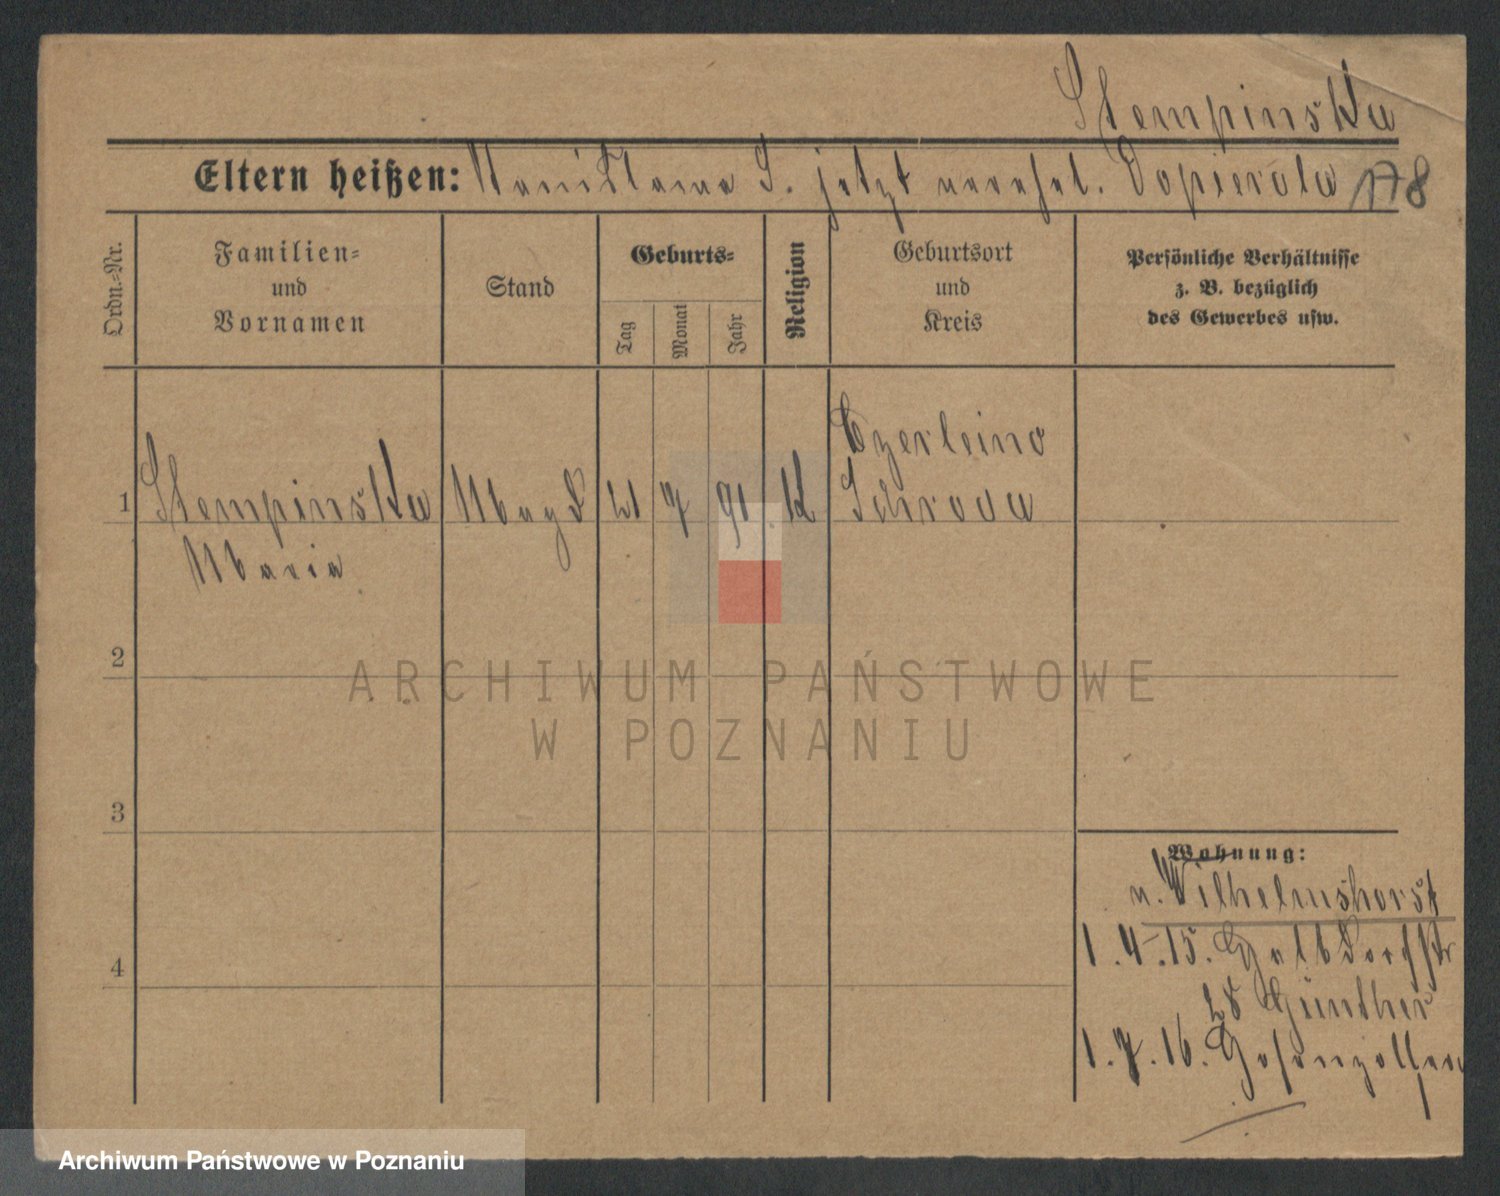 Stempinska
Eltern heißen: Stanislawa S. jetzt verehel. Dopierala 178
Ordn.-Nr.
Familien-
und
Vornamen
Stand
Geburts-
Tag
Monat
Jahr
Religion
Geburtsort
und
Kreis
Persönliche Verhältnisse
z. B. bezüglich
des Gewerbes usw.
1 Stempinska Magd 21 7 91. k Czerleino
Schroda
Maria
2
3
4
Wohnung:
v. Wilhelmshorst
1.4.15.
28 Günther
1.7.16. Hohenzollern
ARCHIWUM PAŃSTWOWE
W POZNANIU
Archiwum Państwowe w Poznaniu